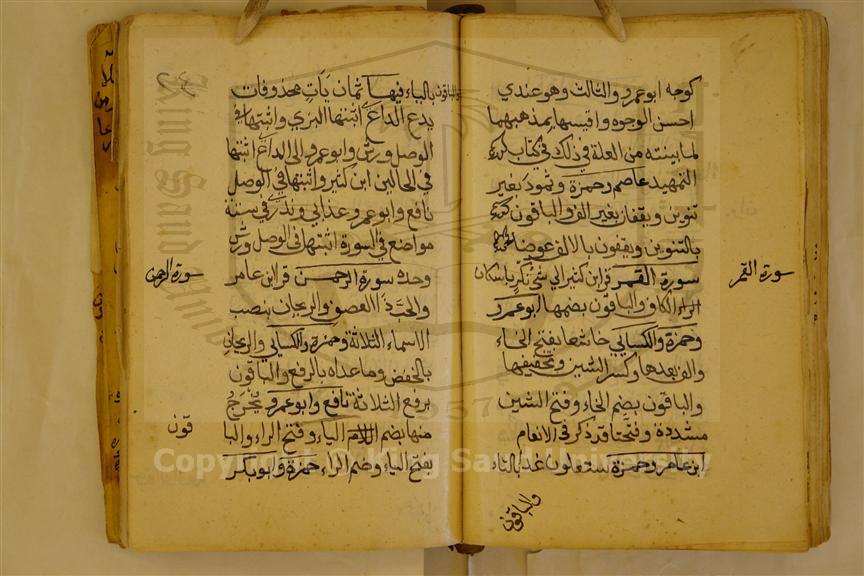 كوجه ابوعمرو والثالث وهو عندي
احسن الوجوه واقيسها بمذهبهما
لما بينته من العلة في ذلك في كتاب
التمهيد عاصم وحمزة وثمود بغير
تنوين ويقفان بغير الف والباقون
بالتنوين ويقفون بالالف عوضا
سورة القمر
سورة القمر قرا ابن كثير الى شئ نكر باسكان
الكاف والباقون بضمها ابوعمرو
وحمزة والكسائي خاشعا بفتح الخاء
والف بعدها وكسر الشين وتخفيفها
والباقون بضم الخاء وفتح الشين
مشددة وفتحنا قد ذكر في الانعام
ابن عامر وحمزة ستعلمون غدا بالتاء
والباقون
٢٤
والباقون بالياء فيها ثمان يات محذوفات
يدع الداع اثبتها البزي واثبتها في
الوصل ورش وابوعمرو والى الداع اثبتها
في الحالين ابن كثير واثبتها في الوصل
نافع وابوعمرو وعذابي ونذر في ستة
مواضع في السورة اثبتها في الوصل ورش
سورة الرحمن
وحده سورة الرحمن قرا ابن عامر
والحب ذا العصف والريحان بنصب
الاسماء الثلاثة وحمزة والكسائي والريحان
بالخفض وما عداه بالرفع والباقون
برفع الثلاثة نافع وابوعمرو يخرج
منها بضم الياء وفتح الراء والبا
قون
بفتح الياء وضم الراء حمزة وابوبكر
Copyright © King Saud University
King Saud University
1957